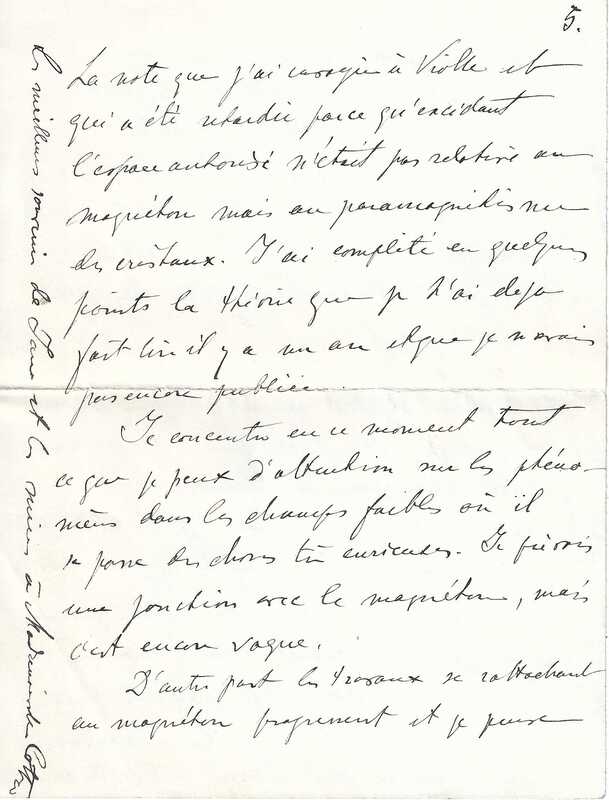 5.
La note que j'ai envoyée à Violle et
qui a été retardée parce qu'excédant
l'espace autorisé n'était pas relative au
magnéton mais au paramagnétisme
des cristaux. J'ai complété en quelques
points la théorie que je t'ai deja
fait lire il y a un an et que je n'avais
pas encore publiée.
Je concentre en ce moment tout
ce que je peux d'attention sur les phéno-
mènes dans les champs faibles où il
se passe des choses très curieuses. Je prévois
une jonction avec le magnéton, mais
c'est encore vague.
D'autre part les travaux se rattachant
au magnéton progressent et je pense
Les meilleurs souvenirs de Jane et les miens à Mademoiselle Cotton